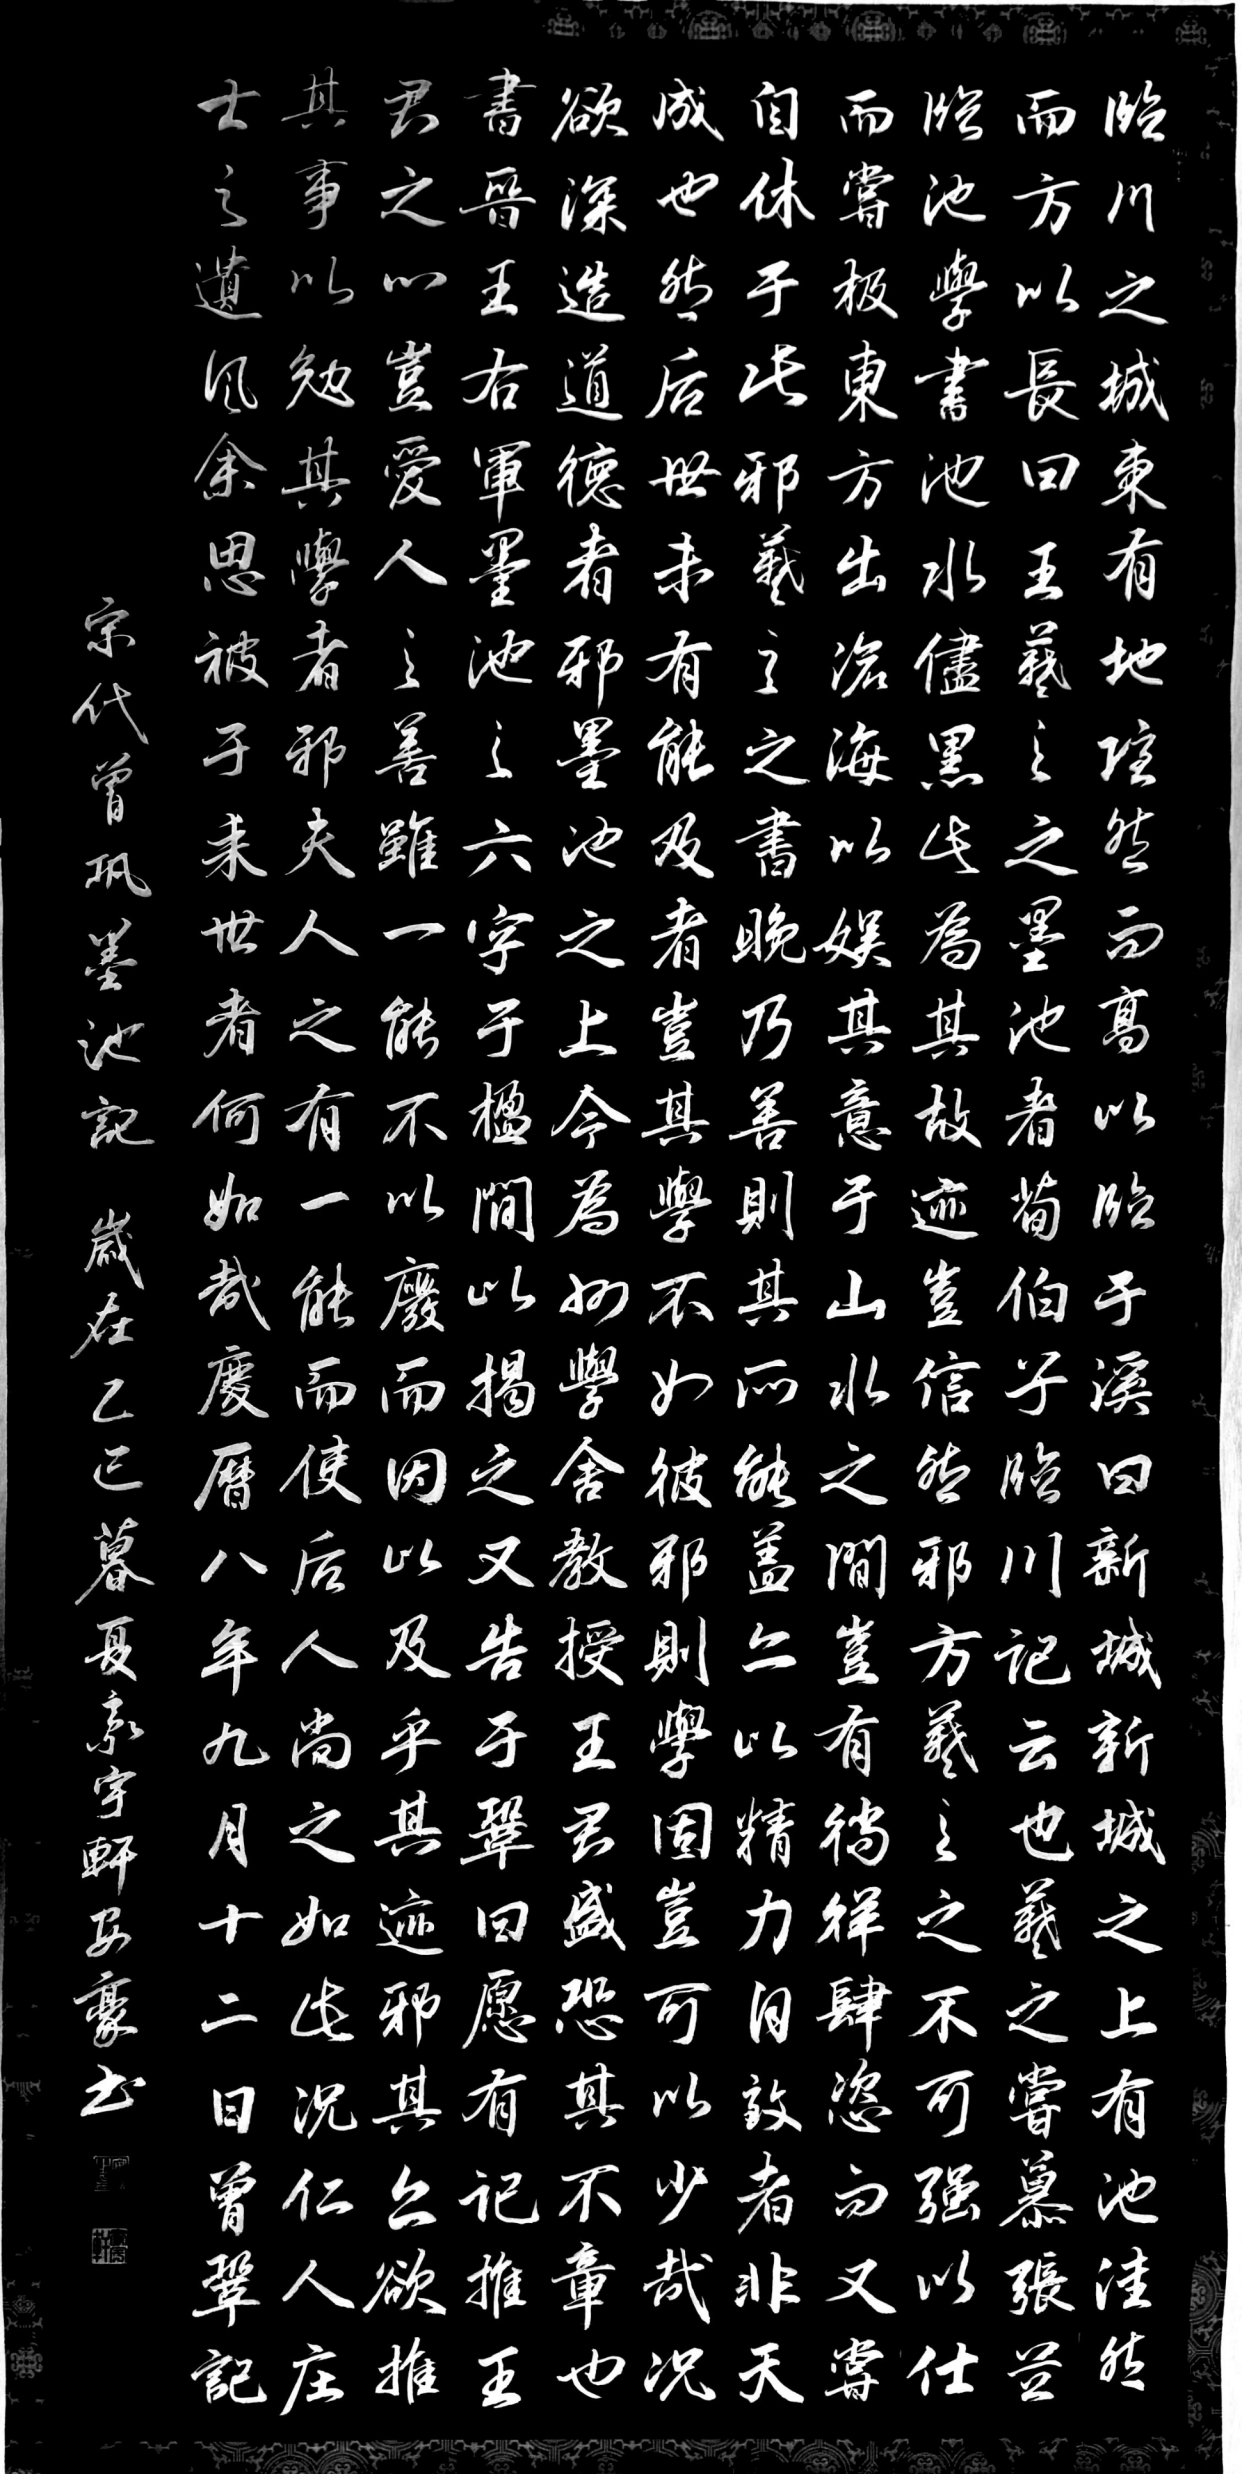 臨川之城東有地隱然而高以臨于溪曰新城新城之上有池洼然
而方以長曰王羲之之墨池者荀伯子臨川記云也羲之嘗慕張芝
臨池學書池水儘黑此為其故迹豈信然邪方羲之之不可强以仕
而嘗极東方出滄海以娱其意于山水之間豈有徜徉肆恣而又嘗
自休于此邪羲之之書晚乃善則其所能盖亦以精力自致者非天
成也然后世未有能及者豈其學不如彼邪則學固豈可以少哉况
欲深造道德者邪墨池之上今為州學舍教授王君盛恐其不章也
書晉王右軍墨池之六字于楹間以揭之又告于鞏曰愿有记推王
君之心豈愛人之善雖一能不以廢而因以及乎其迹邪其亦欲推
其事以勉其學者邪夫人之有一能而使后人尚之如此况仁人庄
士之遺風余思被于来世者何如哉慶曆八年九月十二日曾鞏記
宋代曾巩墨池記 歲在乙巳暮夏宇軒安豪书